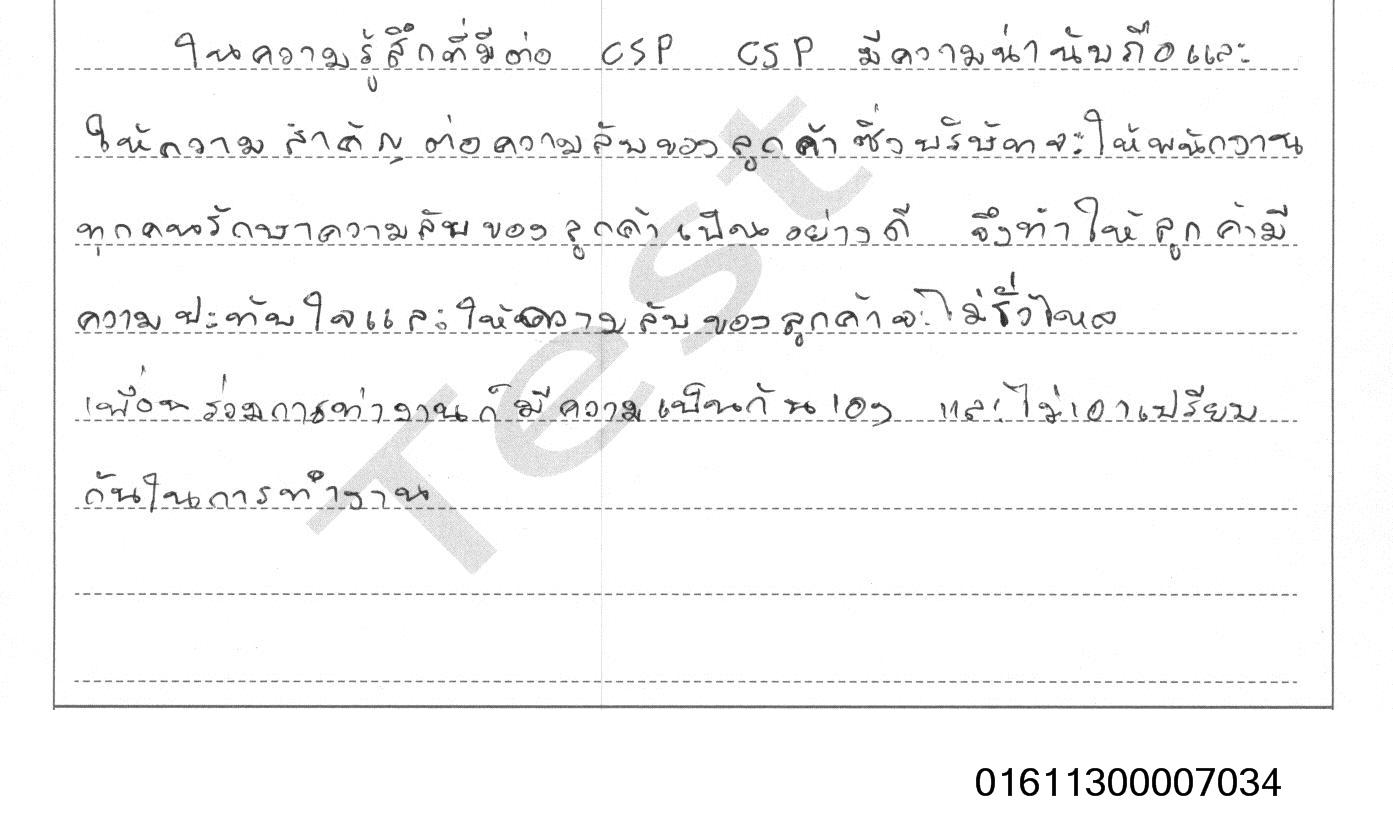 ในความรู้สึกที่มีต่อ CSP CSP มีความน่านับถือและ
ให้ความสำคัญต่อความลับของลูกค้าซึ่งบริษัทจะให้พนักงาน
ทุกคนรักษาความลับของลูกค้าเป็นอย่างดี จึงทำให้ลูกค้ามี
ความประทับใจและให้ความลับของลูกค้าจะไม่รั่วไหล
เพื่อนร่วมการทำงานก็มีความเป็นกันเอง และไม่เอาเปรียบ
กันในการทำงาน
Test
01611300007034